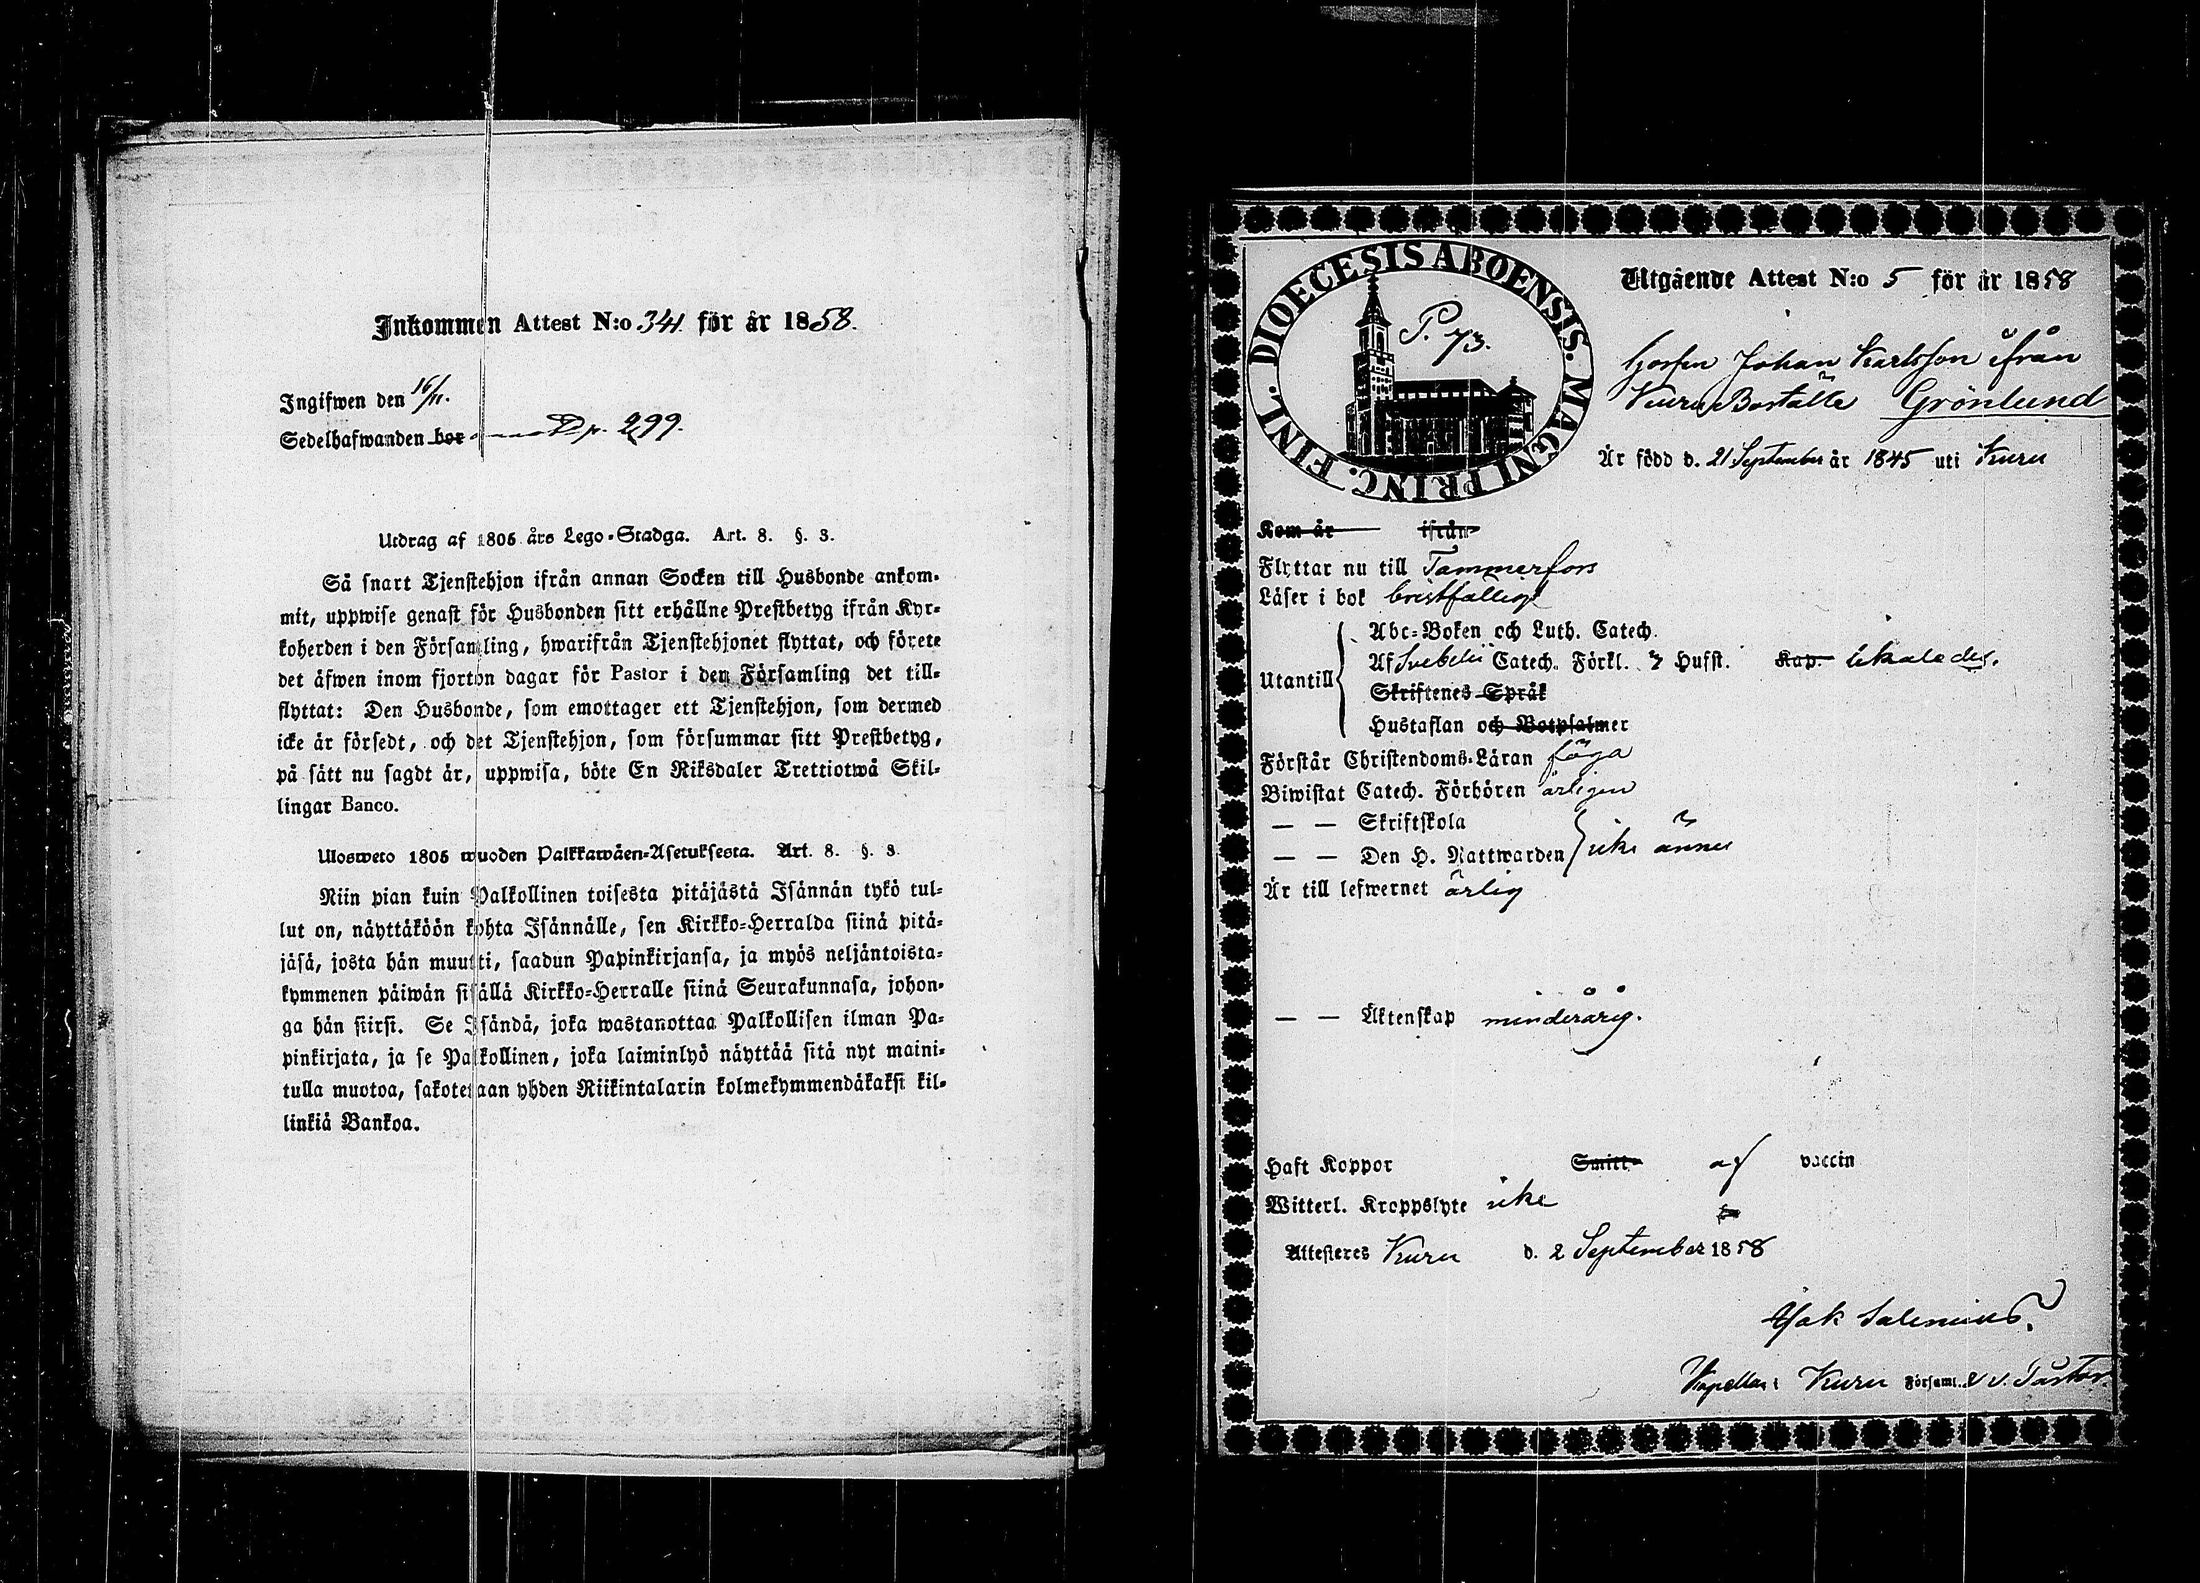 Inkommen Attest N:o 341. för år 1858.
Ingifwen den 16/11.
Sedelhafwanden bor p. 299.
Utdrag af 1805 års Lego-Stadga. Art. 8. §. 3.
Så snart Tjenstehjon ifrån annan Socken till Husbonde ankom-
mit, uppwise genast för Husbonden sitt erhållne Prestbetyg ifrån Kyr-
koherden i den Församling, hwarifrån Tjenstehjonet flyttat, och förete
det äfwen inom fjorton dagar för Pastor i den Församling det till-
flyttat: Den Husbonde, som emottager ett Tjenstehjon, som dermed
icke är försedt, och det Tjenstehjon, som försummar sitt Prestbetyg,
på sätt nu sagdt är, uppwisa, böte En Riksdaler Trettiotwå Skil-
lingar Banco.
Ulosweto 1805 wuoden Palkkawäen-Asetuksesta. Art. 8. §. 3
Niin pian kuin Palkollinen toisesta pitäjästä Isännän tykö tul-
lut on, näyttäköön kohta Isännälle, sen Kirkko-Herralda siinä pitä-
jäsä, josta hän muutti, saadun Papinkirjansa, ja myös neljäntoista-
kymmenen päiwän sisällä Kirkko-Herralle siinä Seurakunnasa, johon-
ga hän siirsi. Se Isändä, joka wastanottaa Palkollisen ilman Pa-
pinkirjata, ja se Palkollinen, joka laiminlyö näyttää sitä nyt maini-
tulla muotoa, sakotetaan yhden Riikintalarin kolmekymmendäkaksi kil-
linkiä Bankoa.
DIOECESIS ABOENSIS. MAGNI PRINC. FINL.
P. 73.
Utgående Attest N:o 5 för år 1858
Gossen Johan Karlsson ifrån
Kuru Boställe Grönlund
Är född d. 21 September år 1845 uti Kuru
Kom år ifrån
Flyttar nu till Tammerfors
Läser i bok bristfälligt
Utantill
Abc-Boken och Luth. Catech.
Af Svebelii Catech. Förkl. 7 Hufst. Kap.
Skriftenes Språk
Hustaflan och Botpsalmer
Förstår Christendoms-Läran föga
Biwistat Catech. Förhören årligen
— — Skriftskola
— — Den H. Nattwarden icke ännu
Är till lefwernet ärlig
— — Äktenskap minderårig.
Haft Koppor Smitt- af vaccin
Witterl. Kroppslyte icke
Attesteres Kuru d. 2 September 1858
Isak Salenius
Kapellan i Kuru Församl. & v. Pastor.